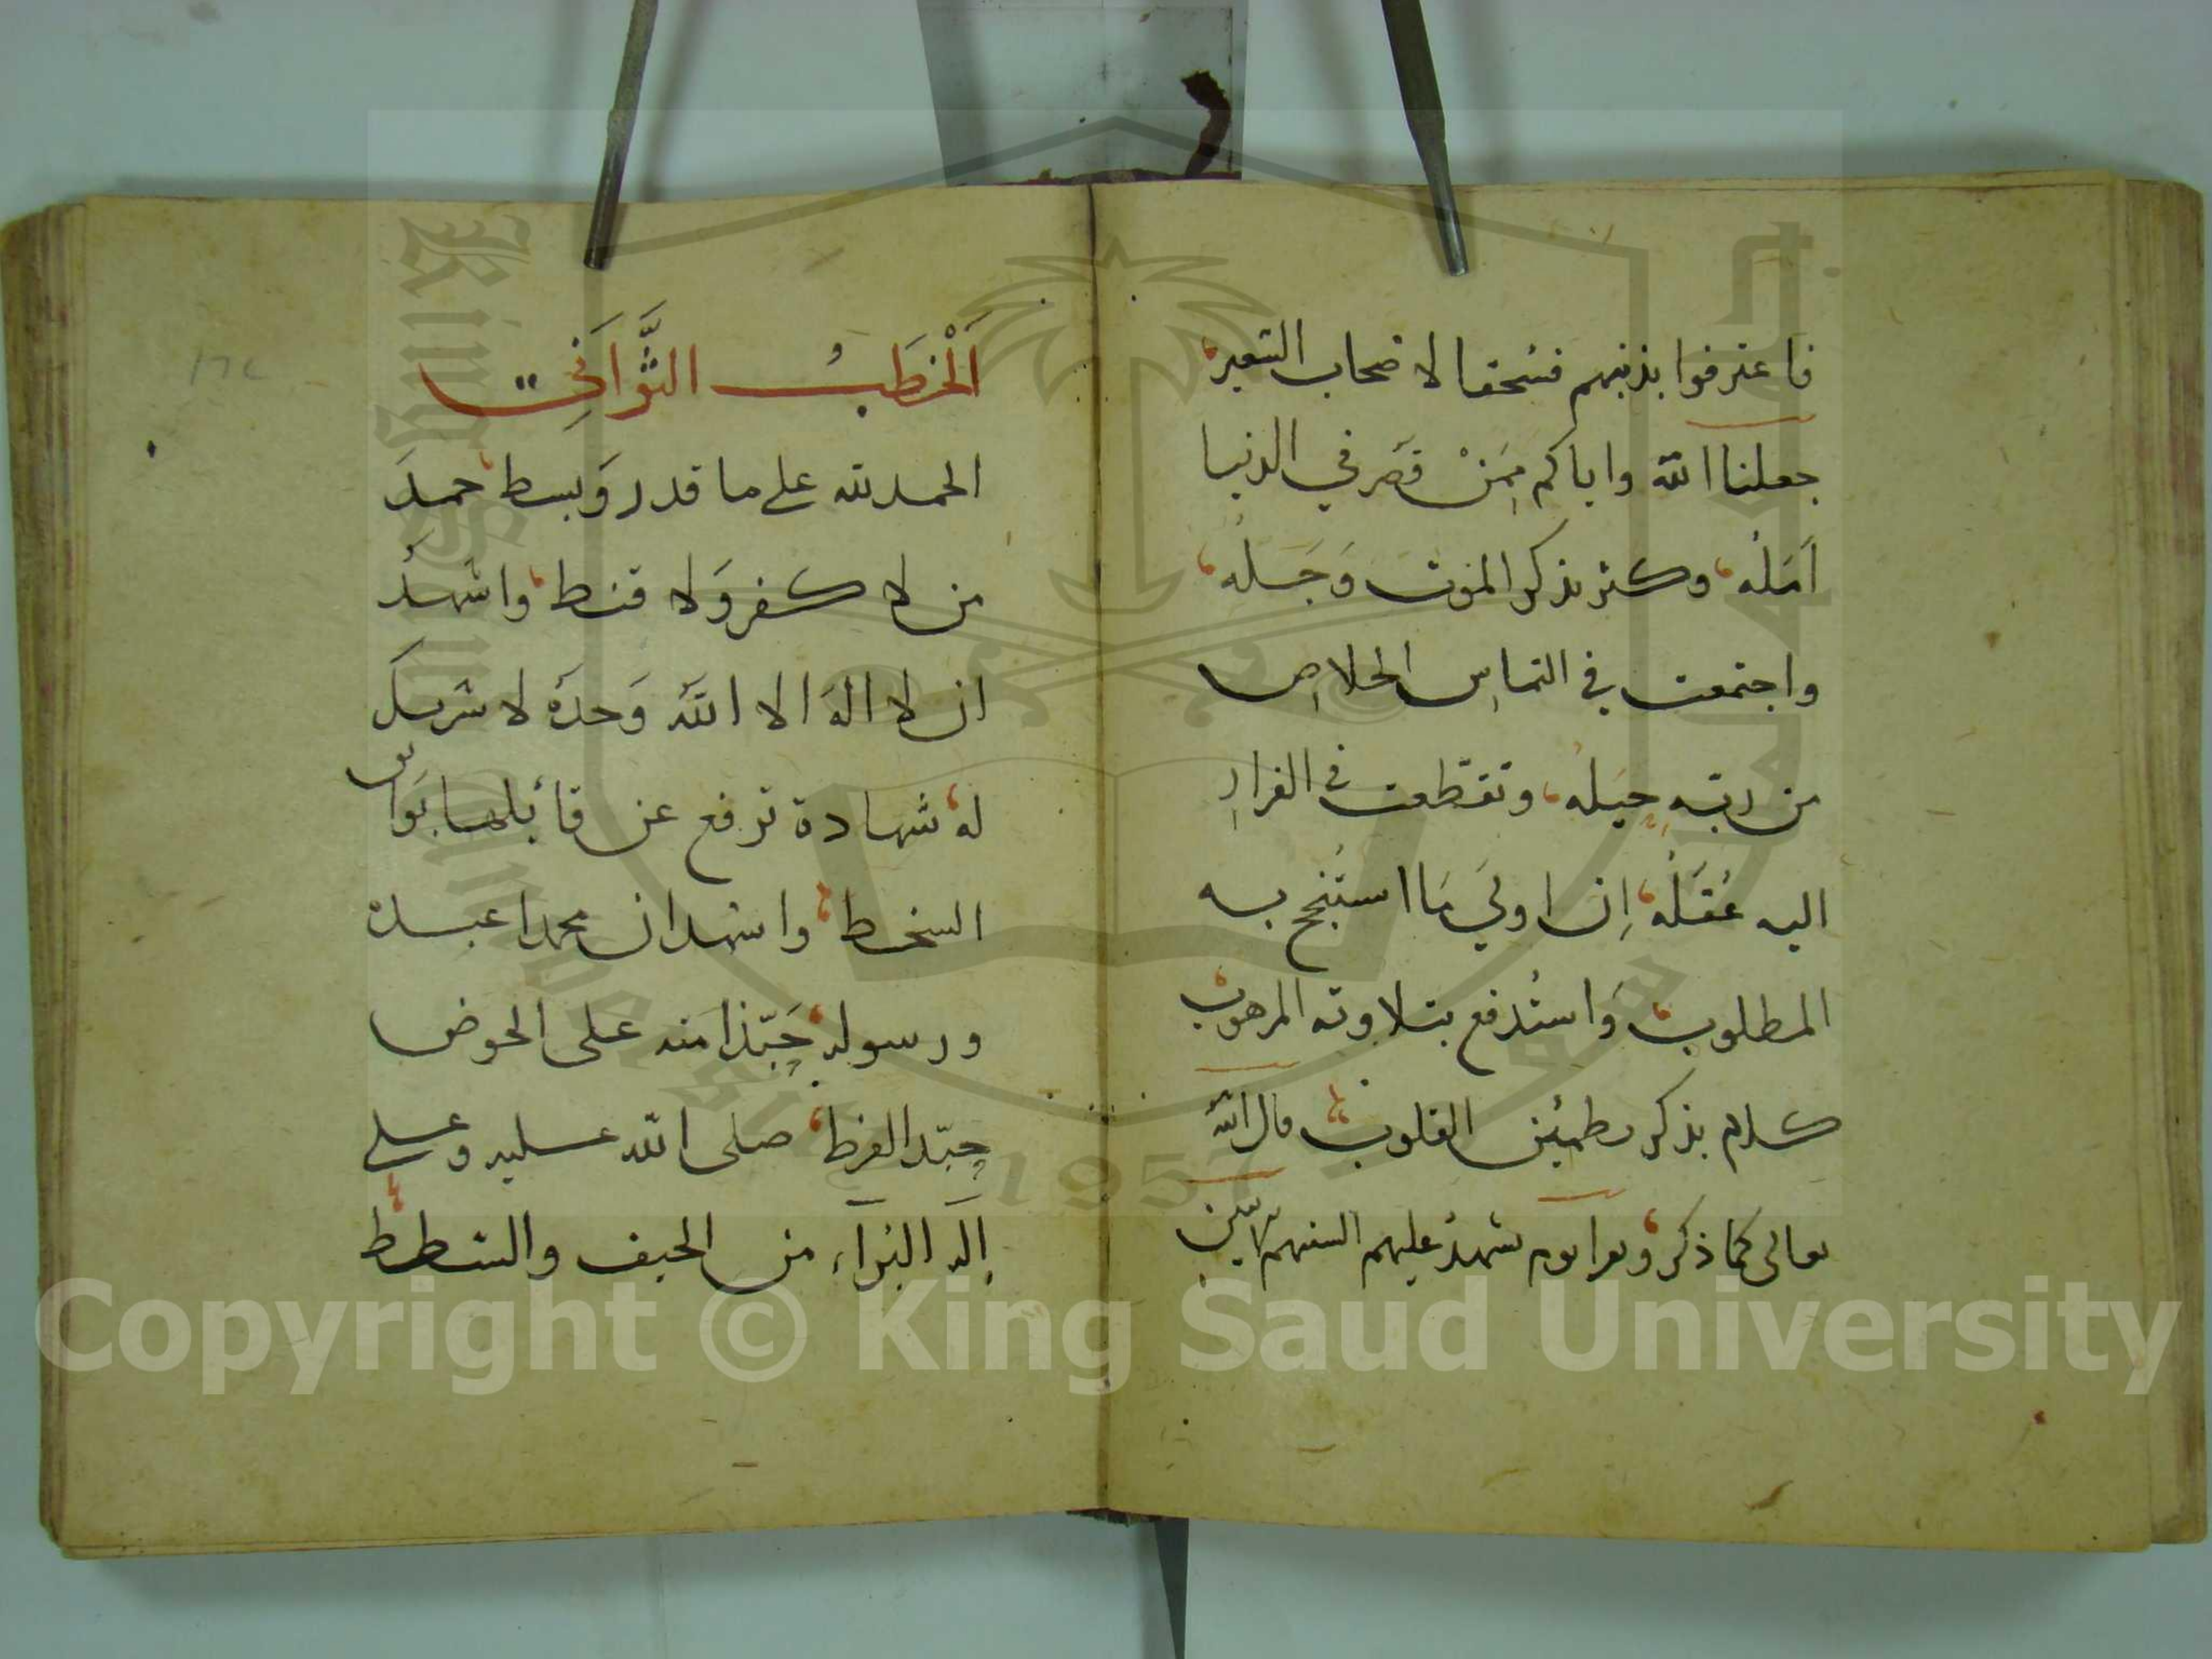 فاعترفوا بذنبهم فسُحقا لاصحاب السّعير
جعلنا اللّه واياكم مِمَنْ قصَر في الدنيا
اَمَلُه، وكثر بذكر الموت وَجَلُه،
واجتمعت في التماسِ الخلاصِ
من ربّه حِيَلُه، وتقطعت في الفرارِ
اليه عُقَلُه، اِن اولى مَا استُنجح به
المطلوب، وَاستُدفع بتلاوته المرهوب
كلام بذكره تطمئِن القلوب، قال اللّه
تعالى كما ذكر، وقرا يوم تشهدُ عليهم السنتهم الآيتين
اَلْخطَبُ الثَّوَانِي
الحمد لله على ما قدر وَبسط، حمدَ
من لا كفر وَلا قنط، واشهدُ
ان لا الهَ الا اللّه وَحدَهُ لا شريكَ
لهُ، شهادة ترفع عن قائلها بَوائق
السخط، واشهد ان محمدا عبده
ورسوله، حَبّذا منه على الحوض
حبّذ الفرط، صلى اللّه عليه وعلى
اِله البُرَآء من الحيف والشطط
Copyright © King Saud University
King Saud University
1957